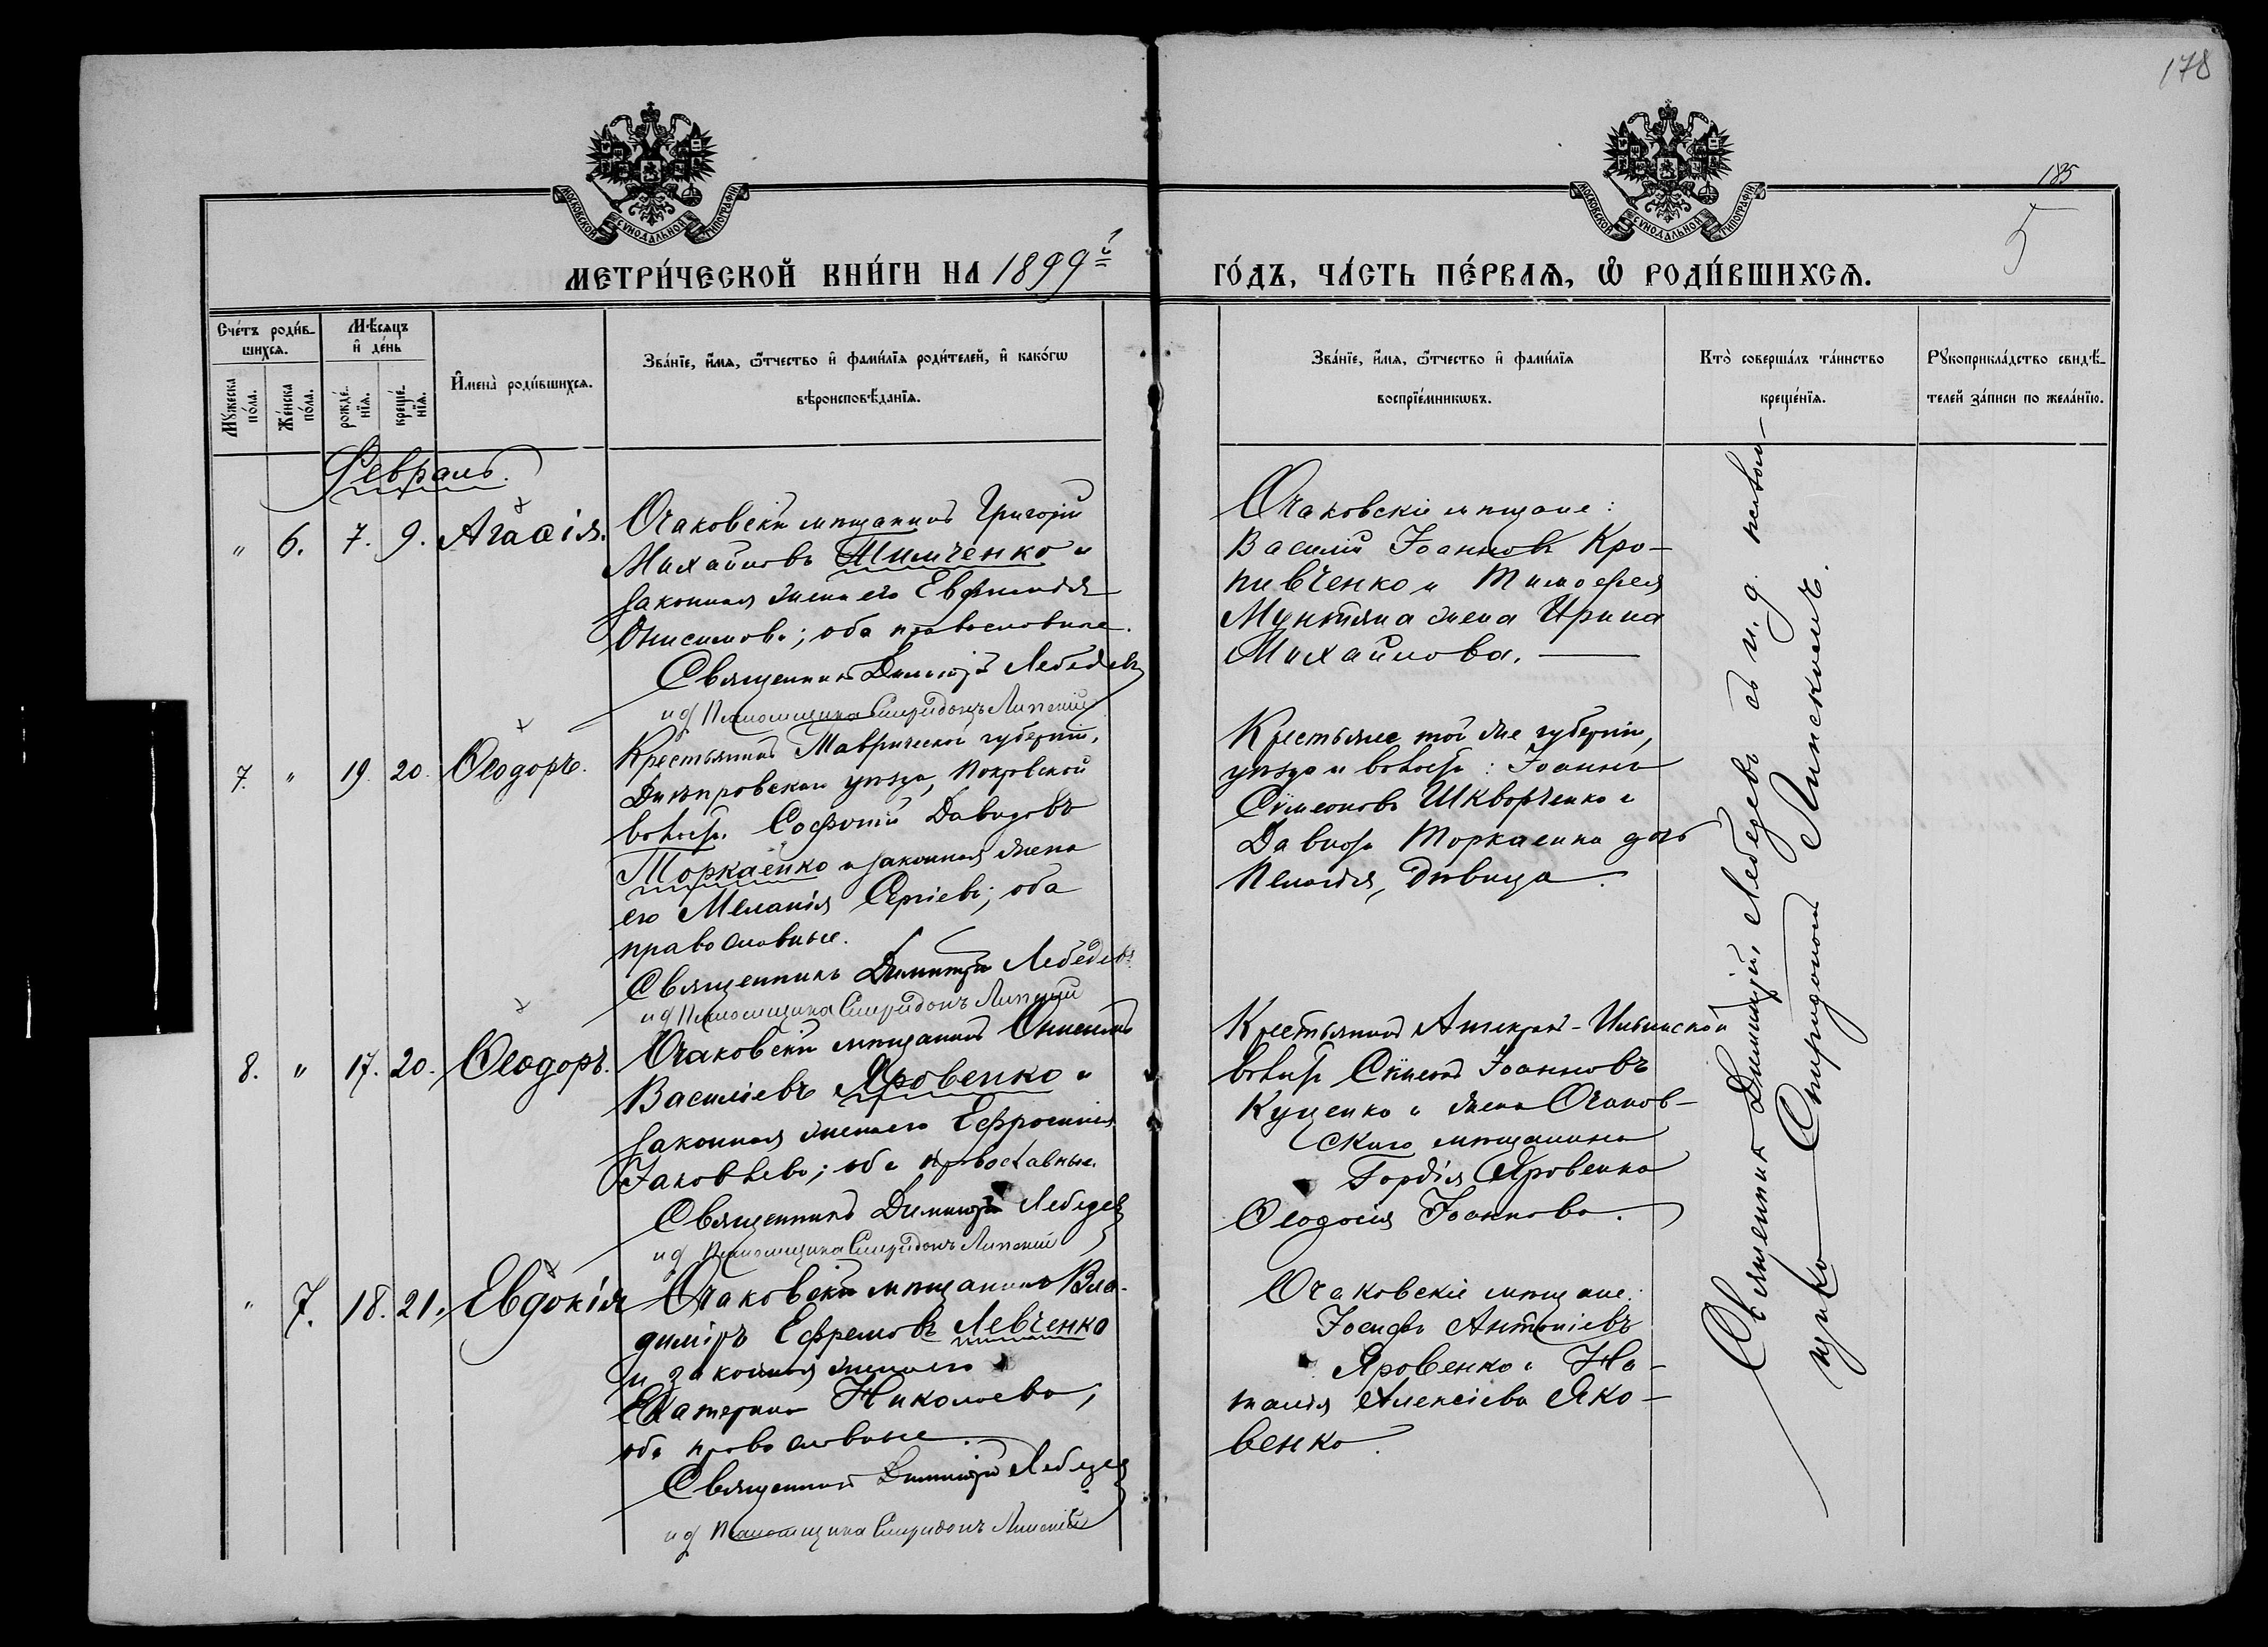 178
185
5
МОСКОВСКОЙ СѴНОДАЛЬНОЙ ТИПОГРАФІИ
МОСКОВСКОЙ СѴНОДАЛЬНОЙ ТИПОГРАФІИ
МЕТРИ́ЧЕСКОЙ КНИ́ГИ НА 1899й
ГО́ДЪ, ЧА́СТЬ ПЕ́РВАѦ, Ѡ҆ РОДИ́ВШИХСѦ.
Сче́тъ роди́в-
шихсѧ.
Мꙋжеска по́ла.
Же́нска по́ла.
Мѣ́сѧцъ и҆ де́нь
рожде́-
нїѧ.
креще́-
нїѧ.
И҆мена̀ роди́вшихсѧ.
Зва́нїе, и҆́мѧ, ѻ҆́тчество и҆ фами́лїѧ роди́телей, и҆ како́гѡ
вѣроисповѣ́данїѧ.
Зва́нїе, и҆́мѧ, ѻ҆́тчество и҆ фами́лїѧ
воспрїе́мникѡвъ.
Кто̀ соверша́лъ та́инство
креще́нїѧ.
Рꙋкоприкла́дство свидѣ́-
телей за́писи по жела́нїю.
Февраль.
" 6. 7. 9. Агаѳія.
Очаковскій мѣщанинъ Григорій
Михайловъ Тимченко и
законная жена его Евфимія
Онисимова; оба православные.
Священникъ Димитрій Лебедевъ
и д Псаломщика Спиридонъ Липскій
Очаковскіе мѣщане:
Василій Іоанновъ Кро-
пивченко и Тимофея
Мунтяна жена Ирина
Михайлова.
7. " 19. 20. Ѳеодоръ.
Крестьянинъ Таврической губерніи,
Днѣпровскаго уѣзда, Покровской
волости Софоній Давидовъ
Торкаенко и законная жена
его Меланія Сергіева; оба
православные.
Священникъ Димитрій Лебедевъ
и д Псаломщика Спиридонъ Липскій
Крестьяне той же губерніи,
уѣзда и волости: Іоаннъ
Сѵмеоновъ Шкворченко и
Давида Торкаенка дочь
Пелагія, дѣвица.
8. " 17. 20. Ѳеодоръ.
Очаковскій мѣщанинъ Онисимъ
Василіевъ Яровенко и
законная жена его Ефросинія
Іаковлева; оба православные.
Священникъ Димитрій Лебедевъ
и д Псаломщика Спиридонъ Липскій
Крестьянинъ Ильинской
волости Сѵмеонъ Іоанновъ
Куценко и жена Очаков-
скаго мѣщанина
Гордія Яровенка
Ѳеодосія Іоаннова.
" 7. 18. 21. Евдокія
Очаковскій мѣщанинъ Вла-
диміръ Ефремовъ Левченко
и законная жена его
Екатерина Николаева;
оба православные.
Священникъ Димитрій Лебедевъ
и д Псаломщика Спиридонъ Липскій
Очаковскіе мѣщане:
Іосифъ Антоніевъ
Яровенко и На-
талія Алексіева Яко-
венко.
Священникъ Димитрій Лебедевъ съ и. д. псалом-
щика Спиридономъ Липскимъ.